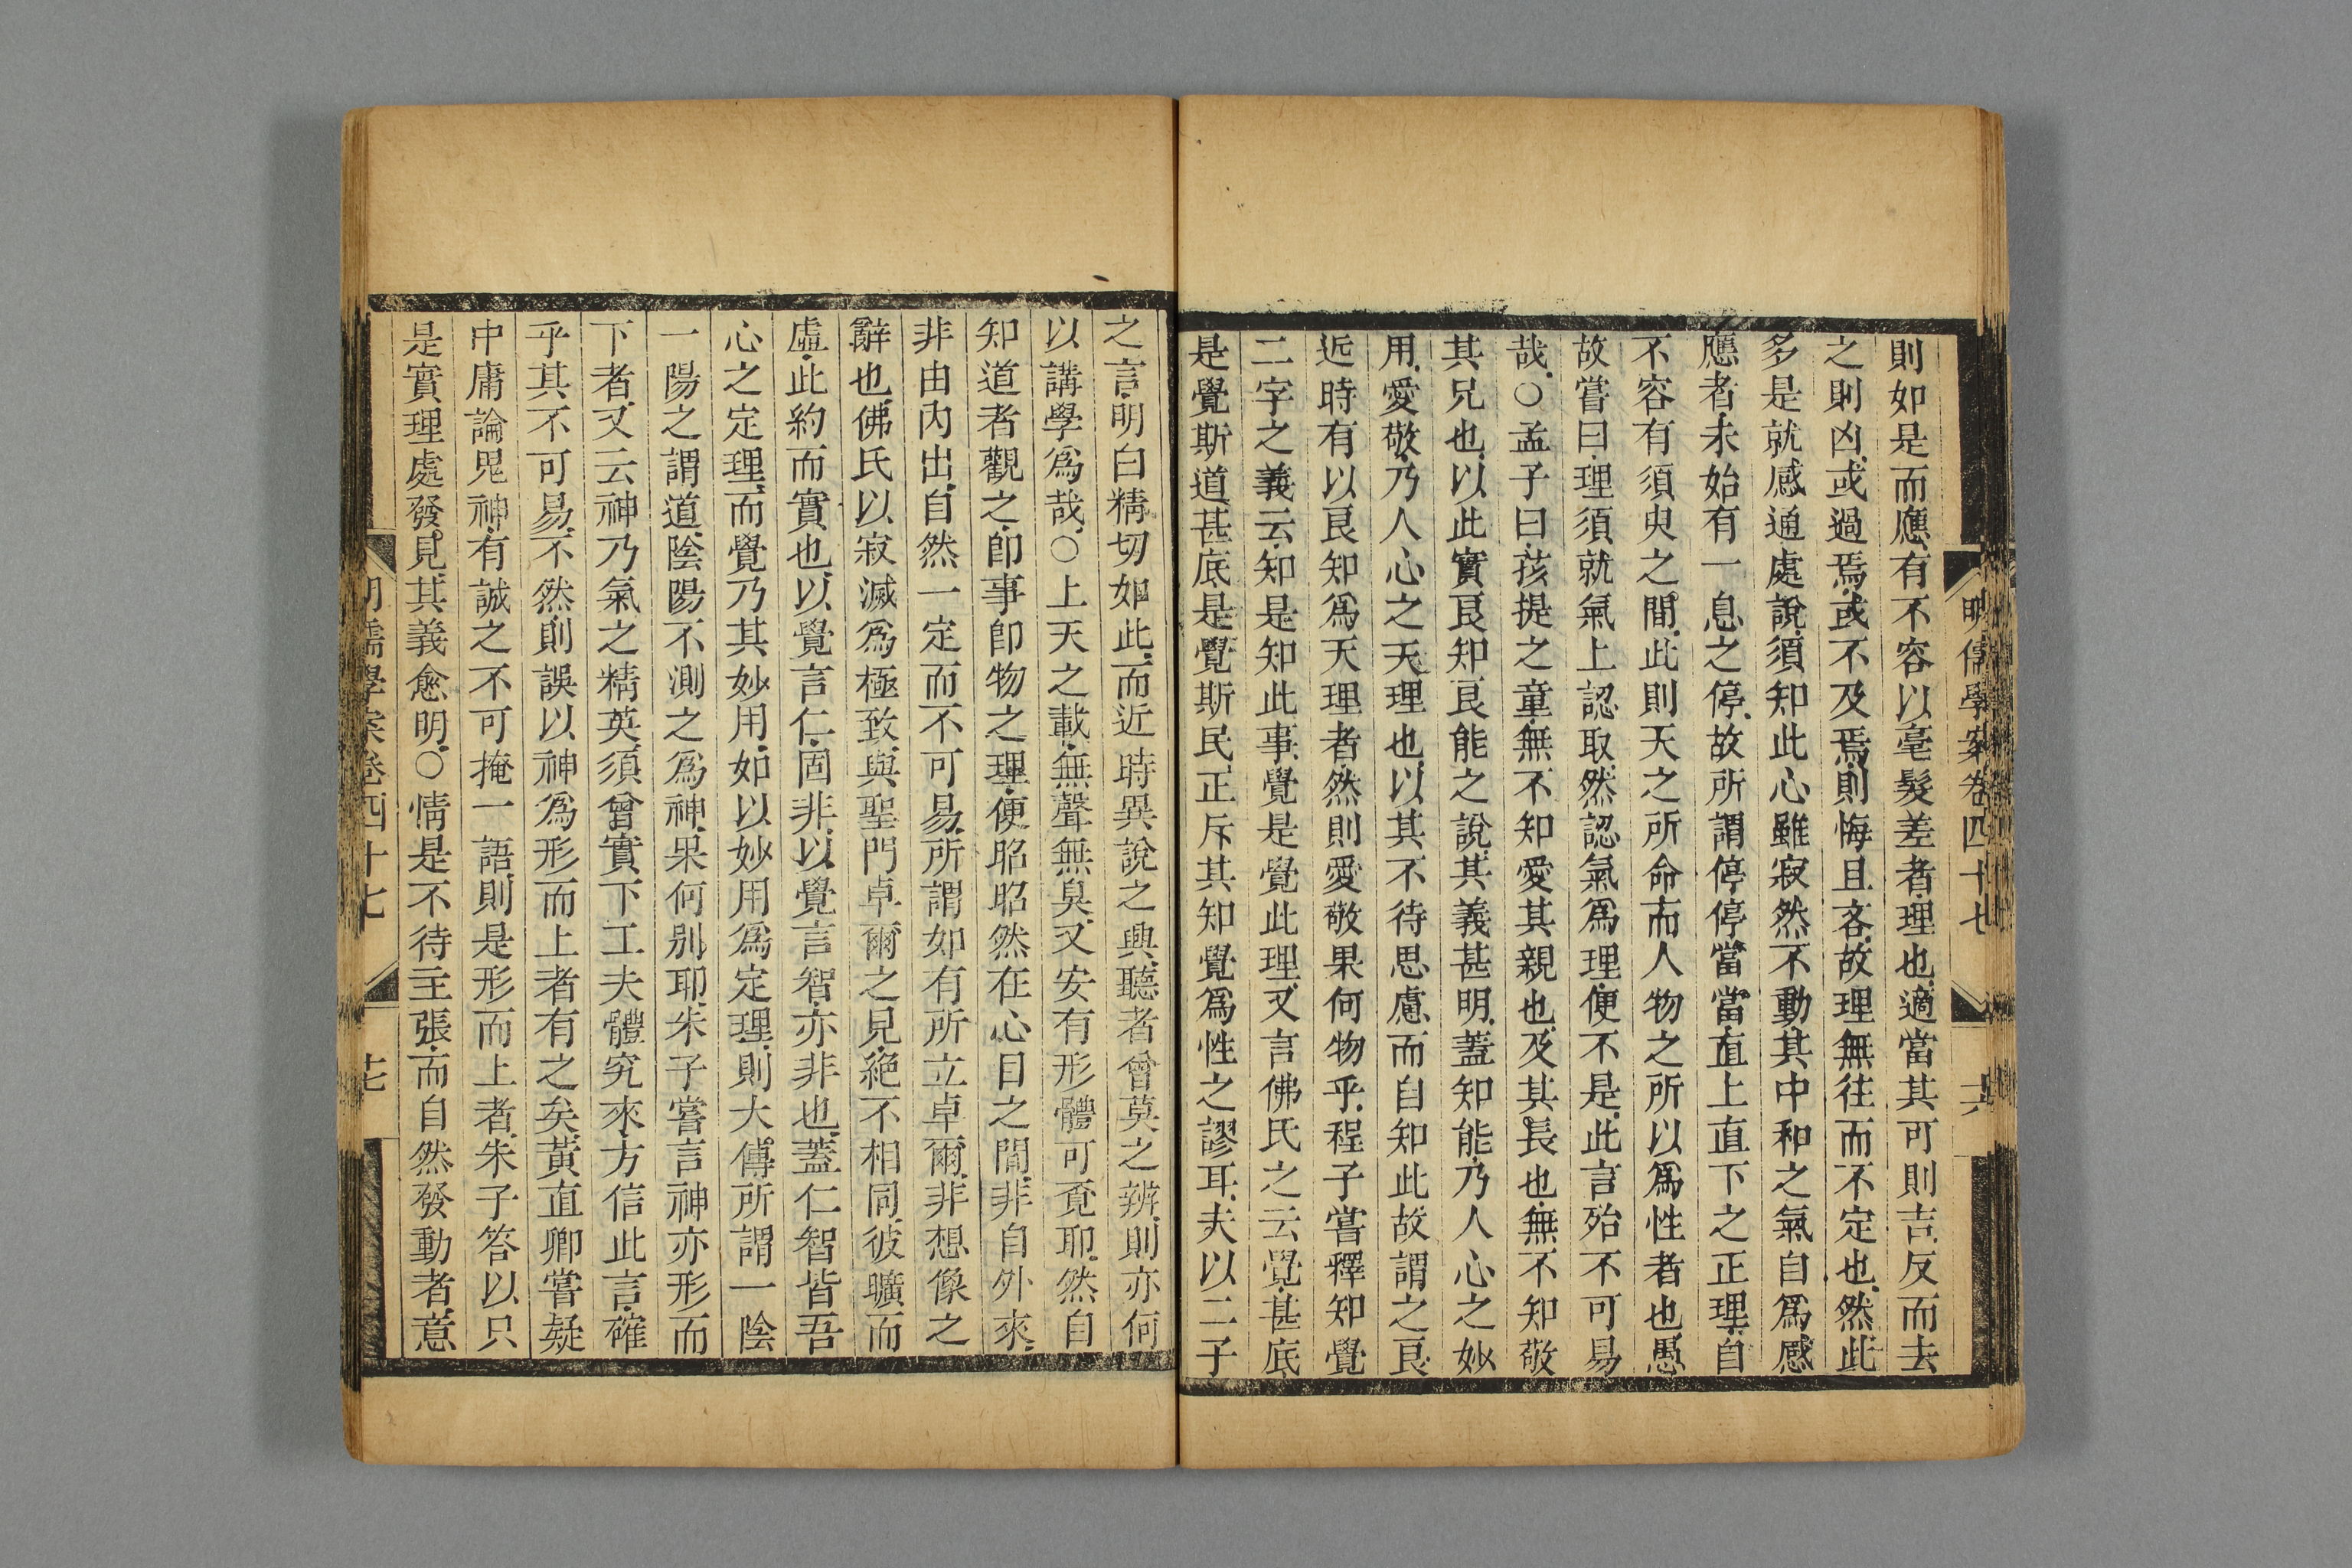 明儒學案卷四十七 十六
則如是而應有不容以毫髮差者理也適當其可則吉反而去
之則凶或過焉或不及焉則悔且吝故理無往而不定也然此
多是就感通處說須知此心雖寂然不動其中和之氣自爲感
應者未始有一息之停故所謂停停當當直上直下之正理自
不容有須臾之間此則天之所命而人物之所以爲性者也愚
故嘗曰理須就氣上認取然認氣爲理便不是此言殆不可易
哉○孟子曰孩提之童無不知愛其親也及其長也無不知敬
其兄也以此實良知良能之說其義甚明蓋知能乃人心之妙
用愛敬乃人心之天理也以其不待思慮而自知此故謂之良
近時有以良知爲天理者然則愛敬果何物乎程子嘗釋知覺
二字之義云知是知此事覺是覺此理又言佛氏之云覺甚底
是覺斯道甚底是覺斯民正斥其知覺爲性之謬耳夫以二子
之言明白精切如此而近時異說之興聽者曾莫之辨則亦何
以講學爲哉○上天之載無聲無臭又安有形體可覓耶然自
知道者觀之卽事卽物之理便昭昭然在心目之間非自外來
非由內出自然一定而不可易所謂如有所立卓爾非想像之
辭也佛氏以寂滅爲極致與聖門卓爾之見絕不相同彼曠而
虛此約而實也以覺言仁固非以覺言智亦非也蓋仁智皆吾
心之定理而覺乃其妙用如以妙用爲定理則大傳所謂一陰
一陽之謂道陰陽不測之爲神果何別耶朱子嘗言神亦形而
下者又云神乃氣之精英須曾實下工夫體究來方信此言確
乎其不可易不然則誤以神爲形而上者有之矣黃直卿嘗疑
中庸論鬼神有誠之不可掩一語則是形而上者朱子答以只
是實理處發見其義愈明○情是不待主張而自然發動者意
明儒學案卷四十七 十七